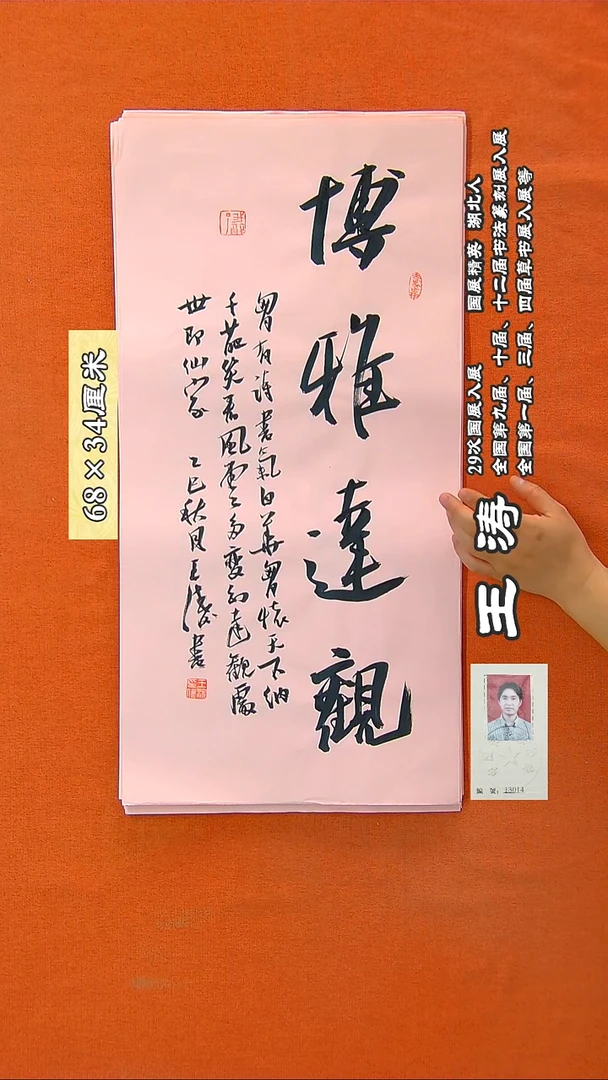 博雅達觀
胷有詩書氣自華胷懷天下納
千葩笑看風雲多變幻達觀處
世即仙家 乙巳秋月王濤書
68×34厘米
29次国展入展 国展精英 湖北人
全国第九届、十届、十二届书法篆刻展入展
全国第一届、三届、四届草书展入展等
王涛
编号：13014